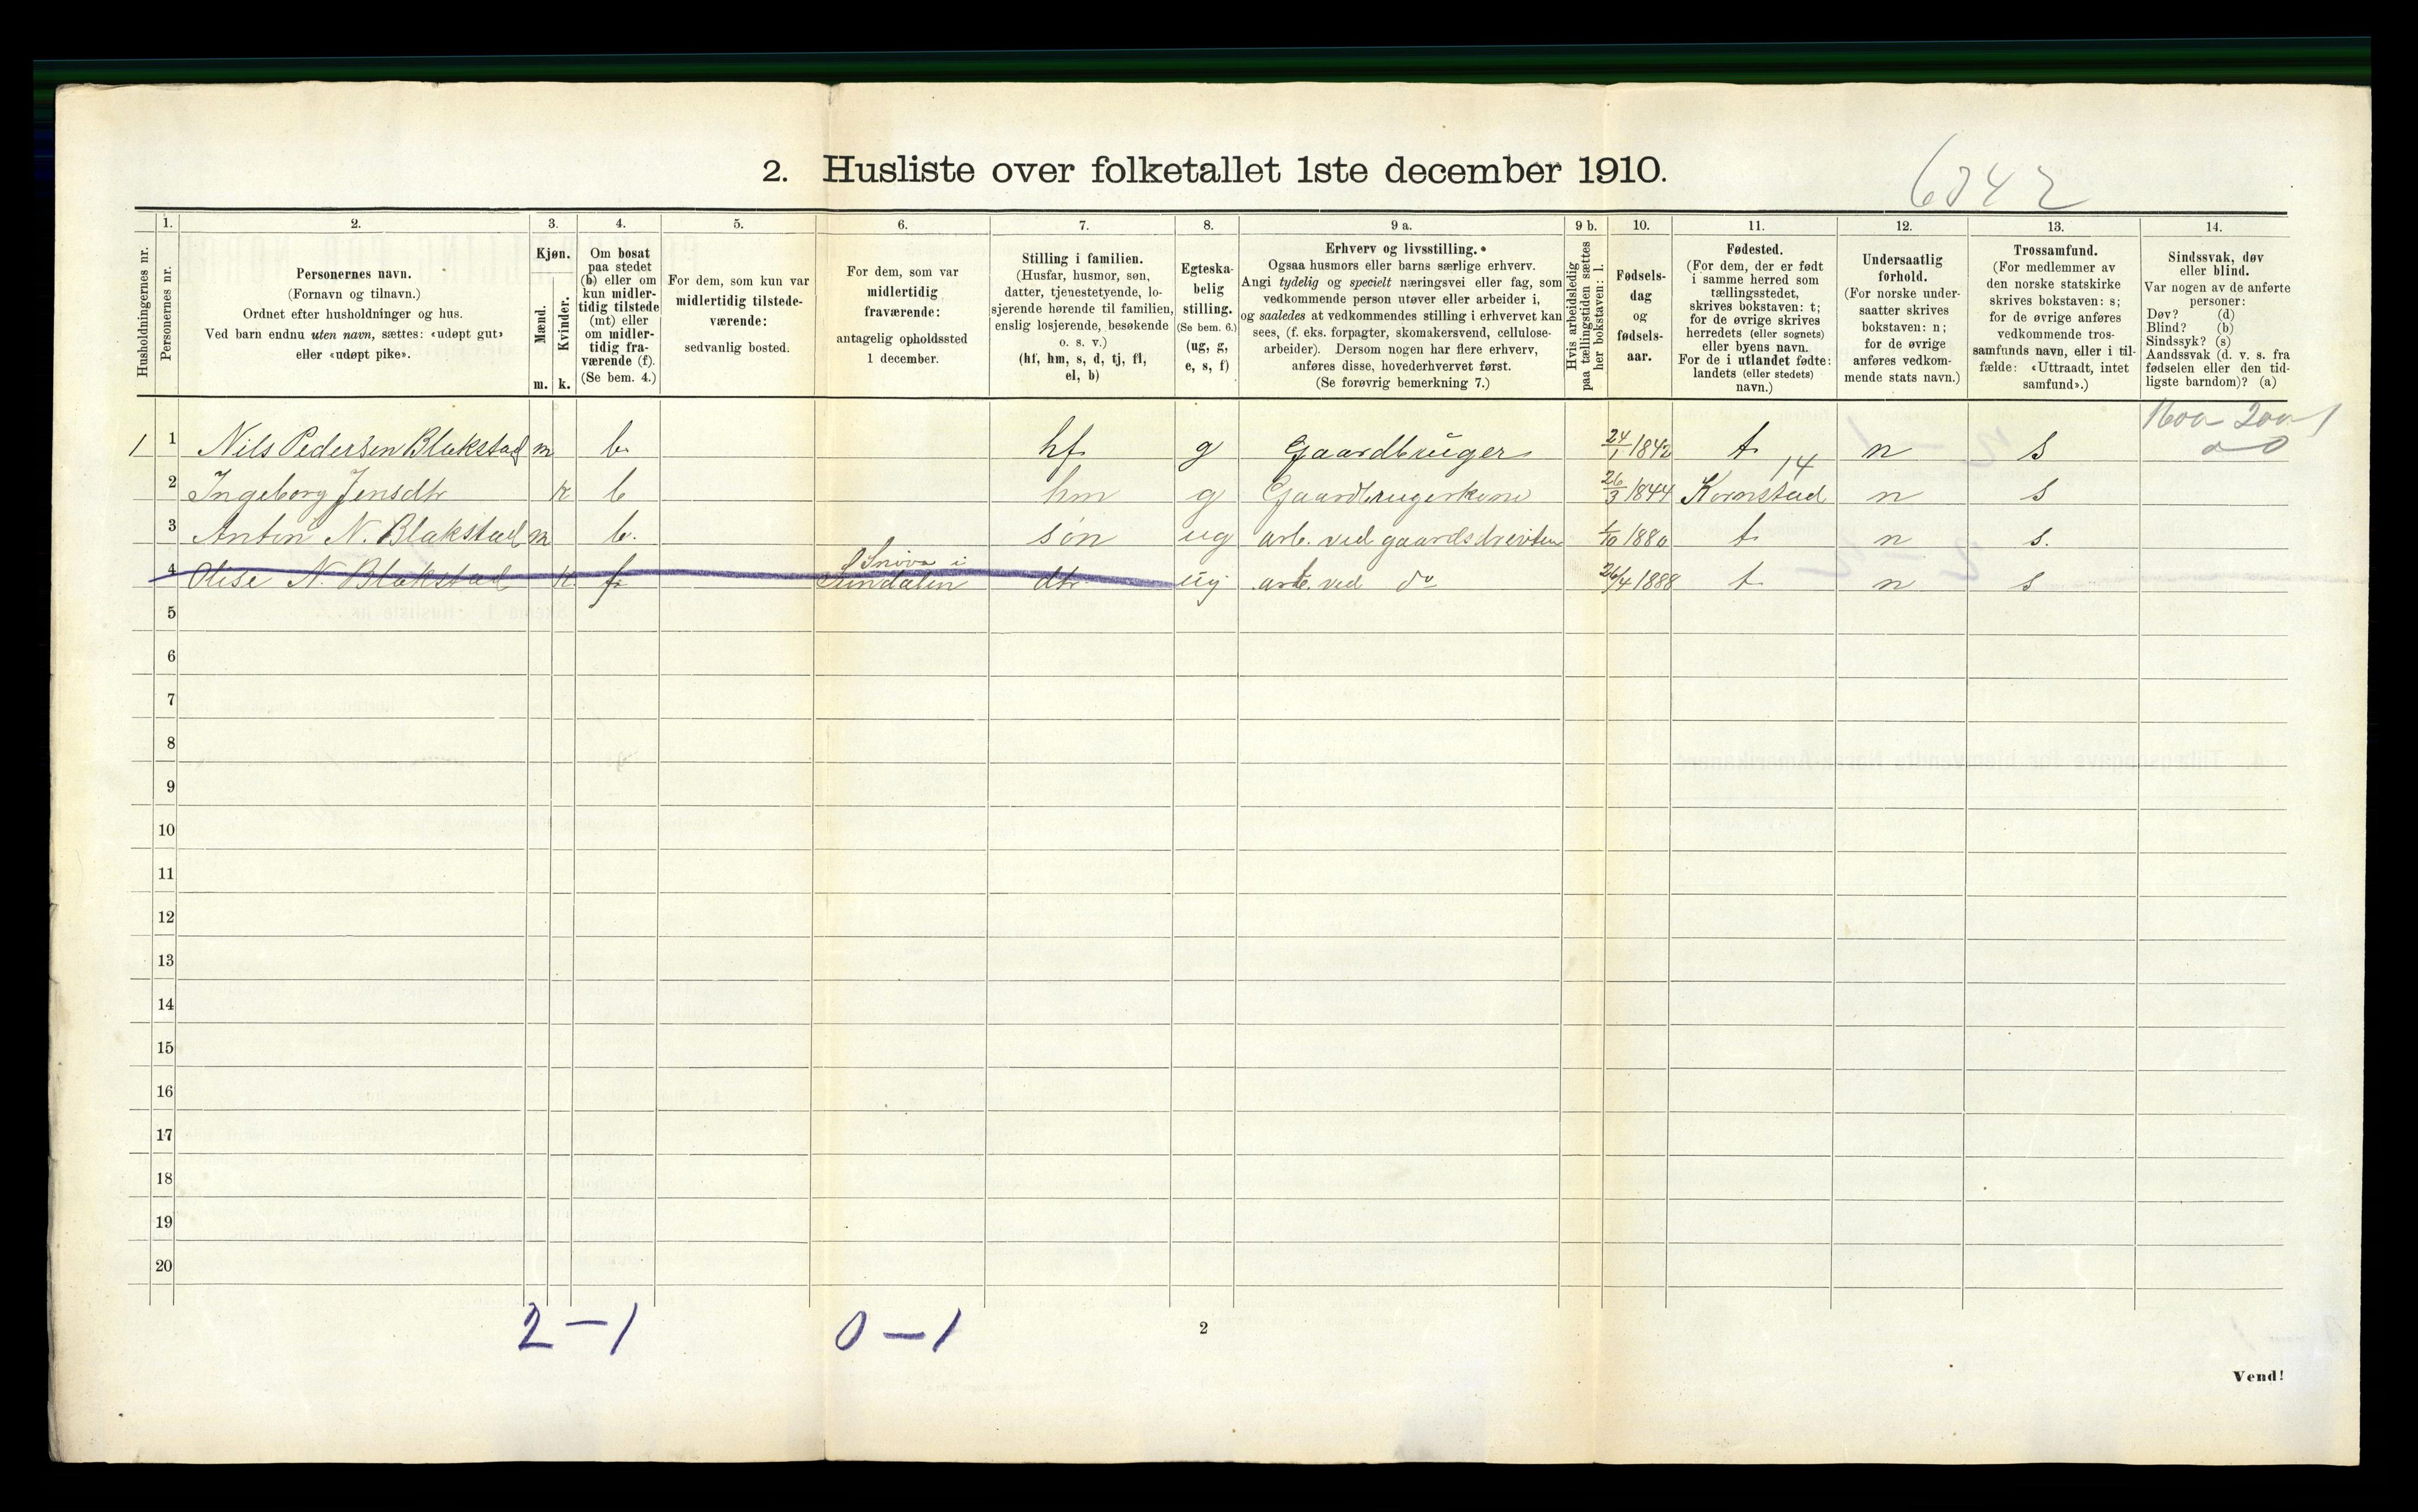 2. Husliste over folketallet 1ste december 1910.
6342
1. 2. 3. 4. 5. 6. 7. 8. 9 a. 9 b. 10. 11. 12. 13. 14.
Husholdningernes nr.
Personernes nr.
Personernes navn.
(Fornavn og tilnavn.)
Ordnet efter husholdninger og hus.
Ved barn endnu uten navn, sættes: «udøpt gut»
eller «udøpt pike».
Kjøn.
Mænd.
Kvinder.
m. k.
Om bosat
paa stedet
(b) eller om
kun midler-
tidig tilstede
(mt) eller
om midler-
tidig fra-
værende (f).
(Se bem. 4.)
For dem, som kun var
midlertidig tilstede-
værende:
sedvanlig bosted.
For dem, som var
midlertidig
fraværende:
antagelig opholdssted
1 december.
Stilling i familien.
(Husfar, husmor, søn,
datter, tjenestetyende, lo-
sjerende hørende til familien,
enslig losjerende, besøkende
o. s. v.)
(hf, hm, s, d, tj, fl,
el, b)
Egteska-
belig
stilling.
(Se bem. 6.)
(ug, g,
e, s, f)
Erhverv og livsstilling.
Ogsaa husmors eller barns særlige erhverv.
Angi tydelig og specielt næringsvei eller fag, som
vedkommende person utøver eller arbeider i,
og saaledes at vedkommendes stilling i erhvervet kan
sees, (f. eks. forpagter, skomakersvend, cellulose-
arbeider). Dersom nogen har flere erhverv,
anføres disse, hovederhvervet først.
(Se forøvrig bemerkning 7.)
Hvis arbeidsledig
paa tællingstiden sættes
her bokstaven: l.
Fødsels-
dag
og
fødsels-
aar.
Fødested.
(For dem, der er født
i samme herred som
tællingsstedet,
skrives bokstaven: t;
for de øvrige skrives
herredets (eller sognets)
eller byens navn.
For de i utlandet fødte:
landets (eller stedets)
navn.)
Undersaatlig
forhold.
(For norske under-
saatter skrives
bokstaven: n;
for de øvrige
anføres vedkom-
mende stats navn.)
Trossamfund.
(For medlemmer av
den norske statskirke
skrives bokstaven: s;
for de øvrige anføres
vedkommende tros-
samfunds navn, eller i til-
fælde: «Uttraadt, intet
samfund».)
Sindssvak, døv
eller blind.
Var nogen av de anførte
personer:
Døv? (d)
Blind? (b)
Sindssyk? (s)
Aandssvak (d. v. s. fra
fødselen eller den tid-
ligste barndom)? (a)
1 1 Nils Pedersen Blakstad m b. hf g Gaardbruger 24/1 1842 t. n s
14
2 Ingeborg Jensdtr k b hm g Gaardbrugerkone 26/3 1844 Kornstad n s
3 Anton N. Blakstad m b. søn ug arb. ved gaardsdriften 1/10 1880 t. n s.
4 Olise N. Blakstad k f dtr ug arb. ved do 26/4 1888 t n s
5
6
7
8
9
10
11
12
13
14
15
16
17
18
19
20
2 — 1 0 — 1
2
Vend!